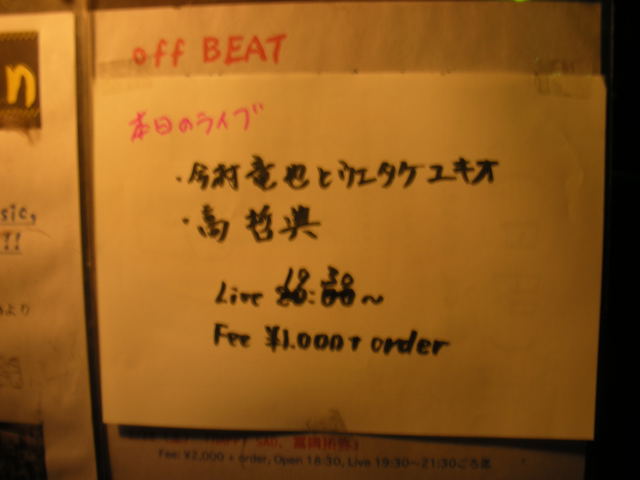 off BEAT
本日のライブ
・今村竜也とウエタケユキオ
・高 哲典
Live 19:30~
Fee ¥1.000+ order
n
sic,
!!
より
Fee: ¥2,000 + order, Open 18:30, Live 19:30~21:30ごろ迄